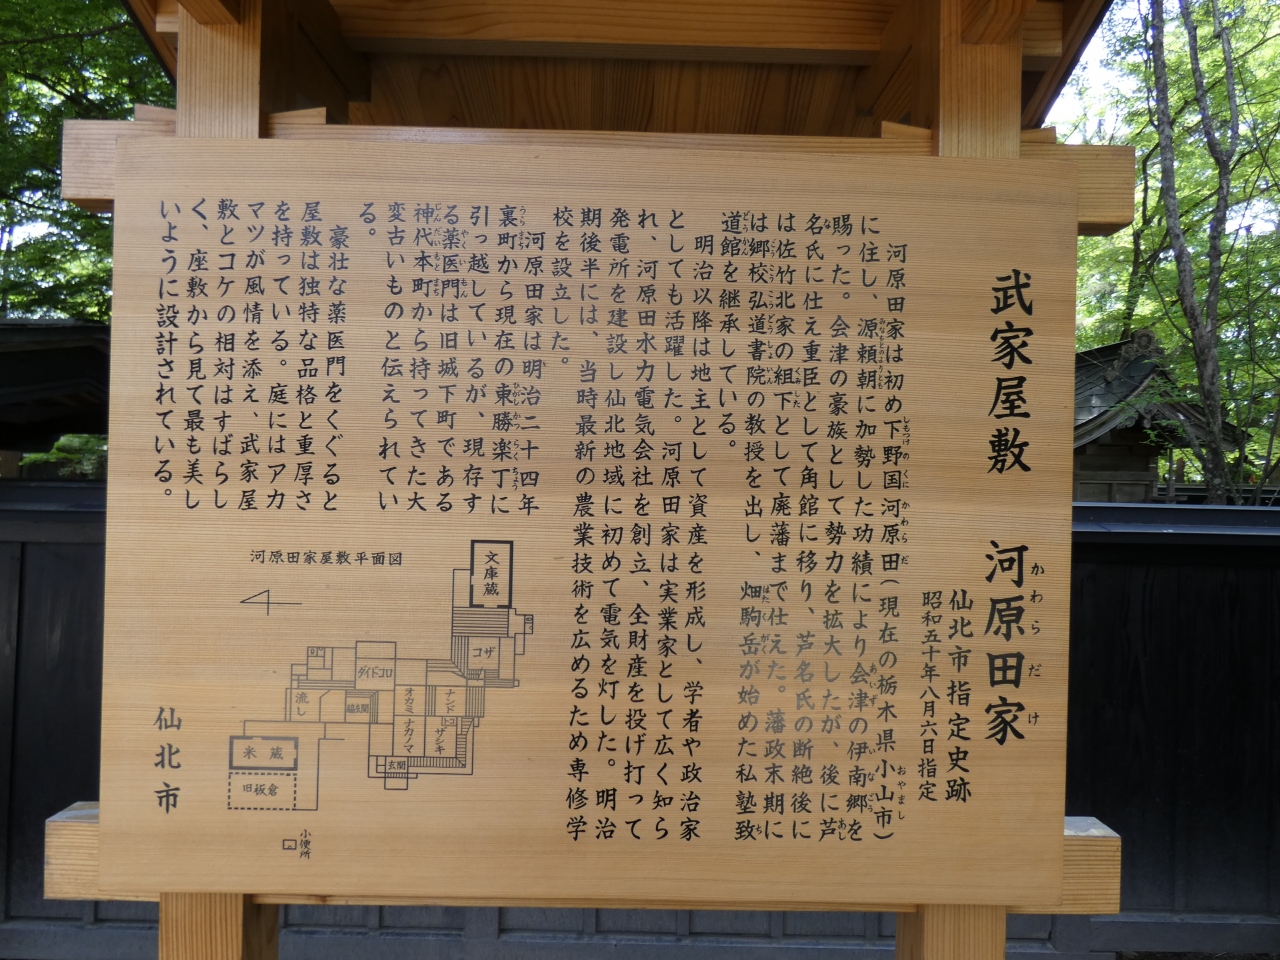 武家屋敷　河原田家
かわらだけ
仙北市指定史跡
昭和五十年八月六日指定
河原田家は初め下野国河原田（現在の栃木県小山市）
に住し、源頼朝に加勢した功績により会津の伊南郷を
賜った。会津の豪族として勢力を拡大したが、後に芦
名氏に仕え重臣として角館に移り、芦名氏の断絶後に
は佐竹北家の組下として廃藩まで仕えた。藩政末期に
は郷校弘道書院の教授を出し、畑駒岳が始めた私塾致
道館を継承している。
明治以降は地主として資産を形成し、学者や政治家
としても活躍した。河原田家は実業家として広く知ら
れ、河原田水力電気会社を創立、全財産を投げ打って
発電所を建設し仙北地域に初めて電気を灯した。明治
期後半には、当時最新の農業技術を広めるため専修学
校を設立した。
河原田家は明治二十四年
裏町から現在の東勝楽丁に
引っ越しているが、現存す
る薬医門は旧城下町である
神代本町から持ってきた大
変古いものと伝えられてい
る。
豪壮な薬医門をくぐると
屋敷は独特な品格と重厚さ
を持っている。庭にはアカ
マツが風情を添え、武家屋
敷とコケの相対はすばらし
く、座敷から見て最も美し
いように設計されている。
仙北市
河原田家屋敷平面図
文庫蔵
コザ
ダイドコロ
流し
脇玄関
オカミ
ナカノマ
ナンド
トコ
ザシキ
玄関
米蔵
旧板倉
小便所